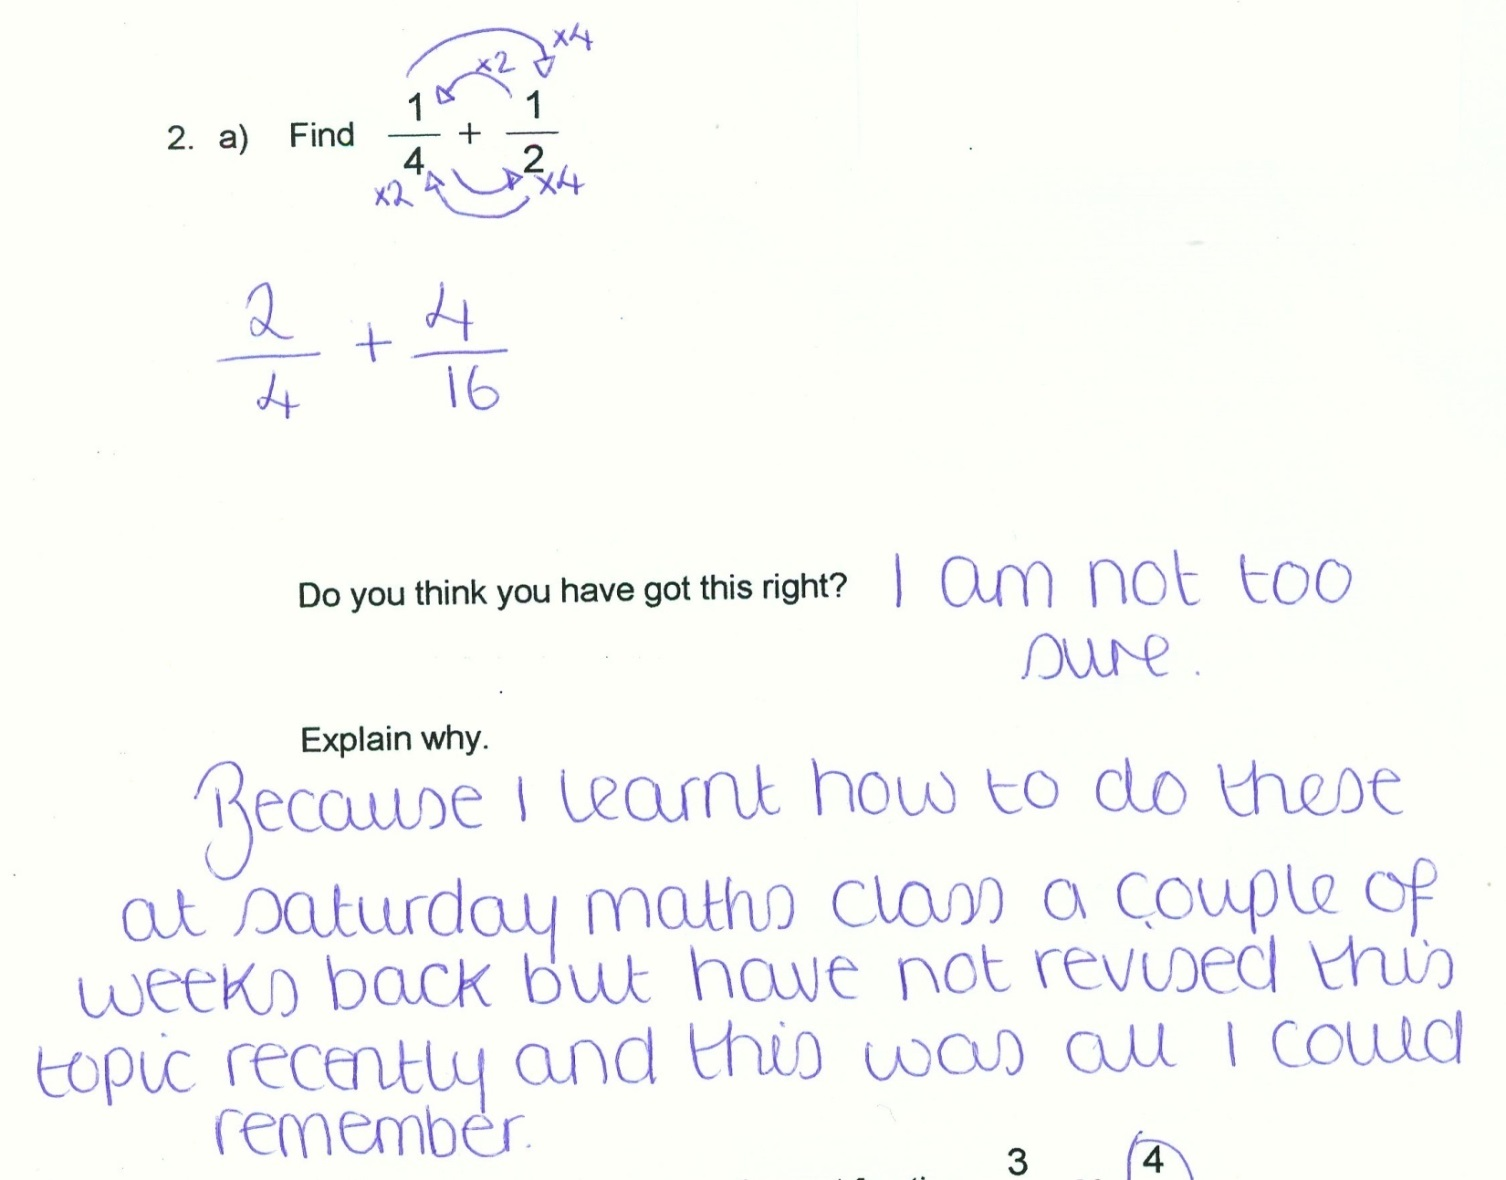 ×4
×2
2. a) Find 1/4 + 1/2
×2 ×4
2/4 + 4/16
Do you think you have got this right? I am not too
sure.
Explain why.
Because I learnt how to do these
at saturday maths class a couple of
weeks back but have not revised this
topic recently and this was all I could
remember.
3 4